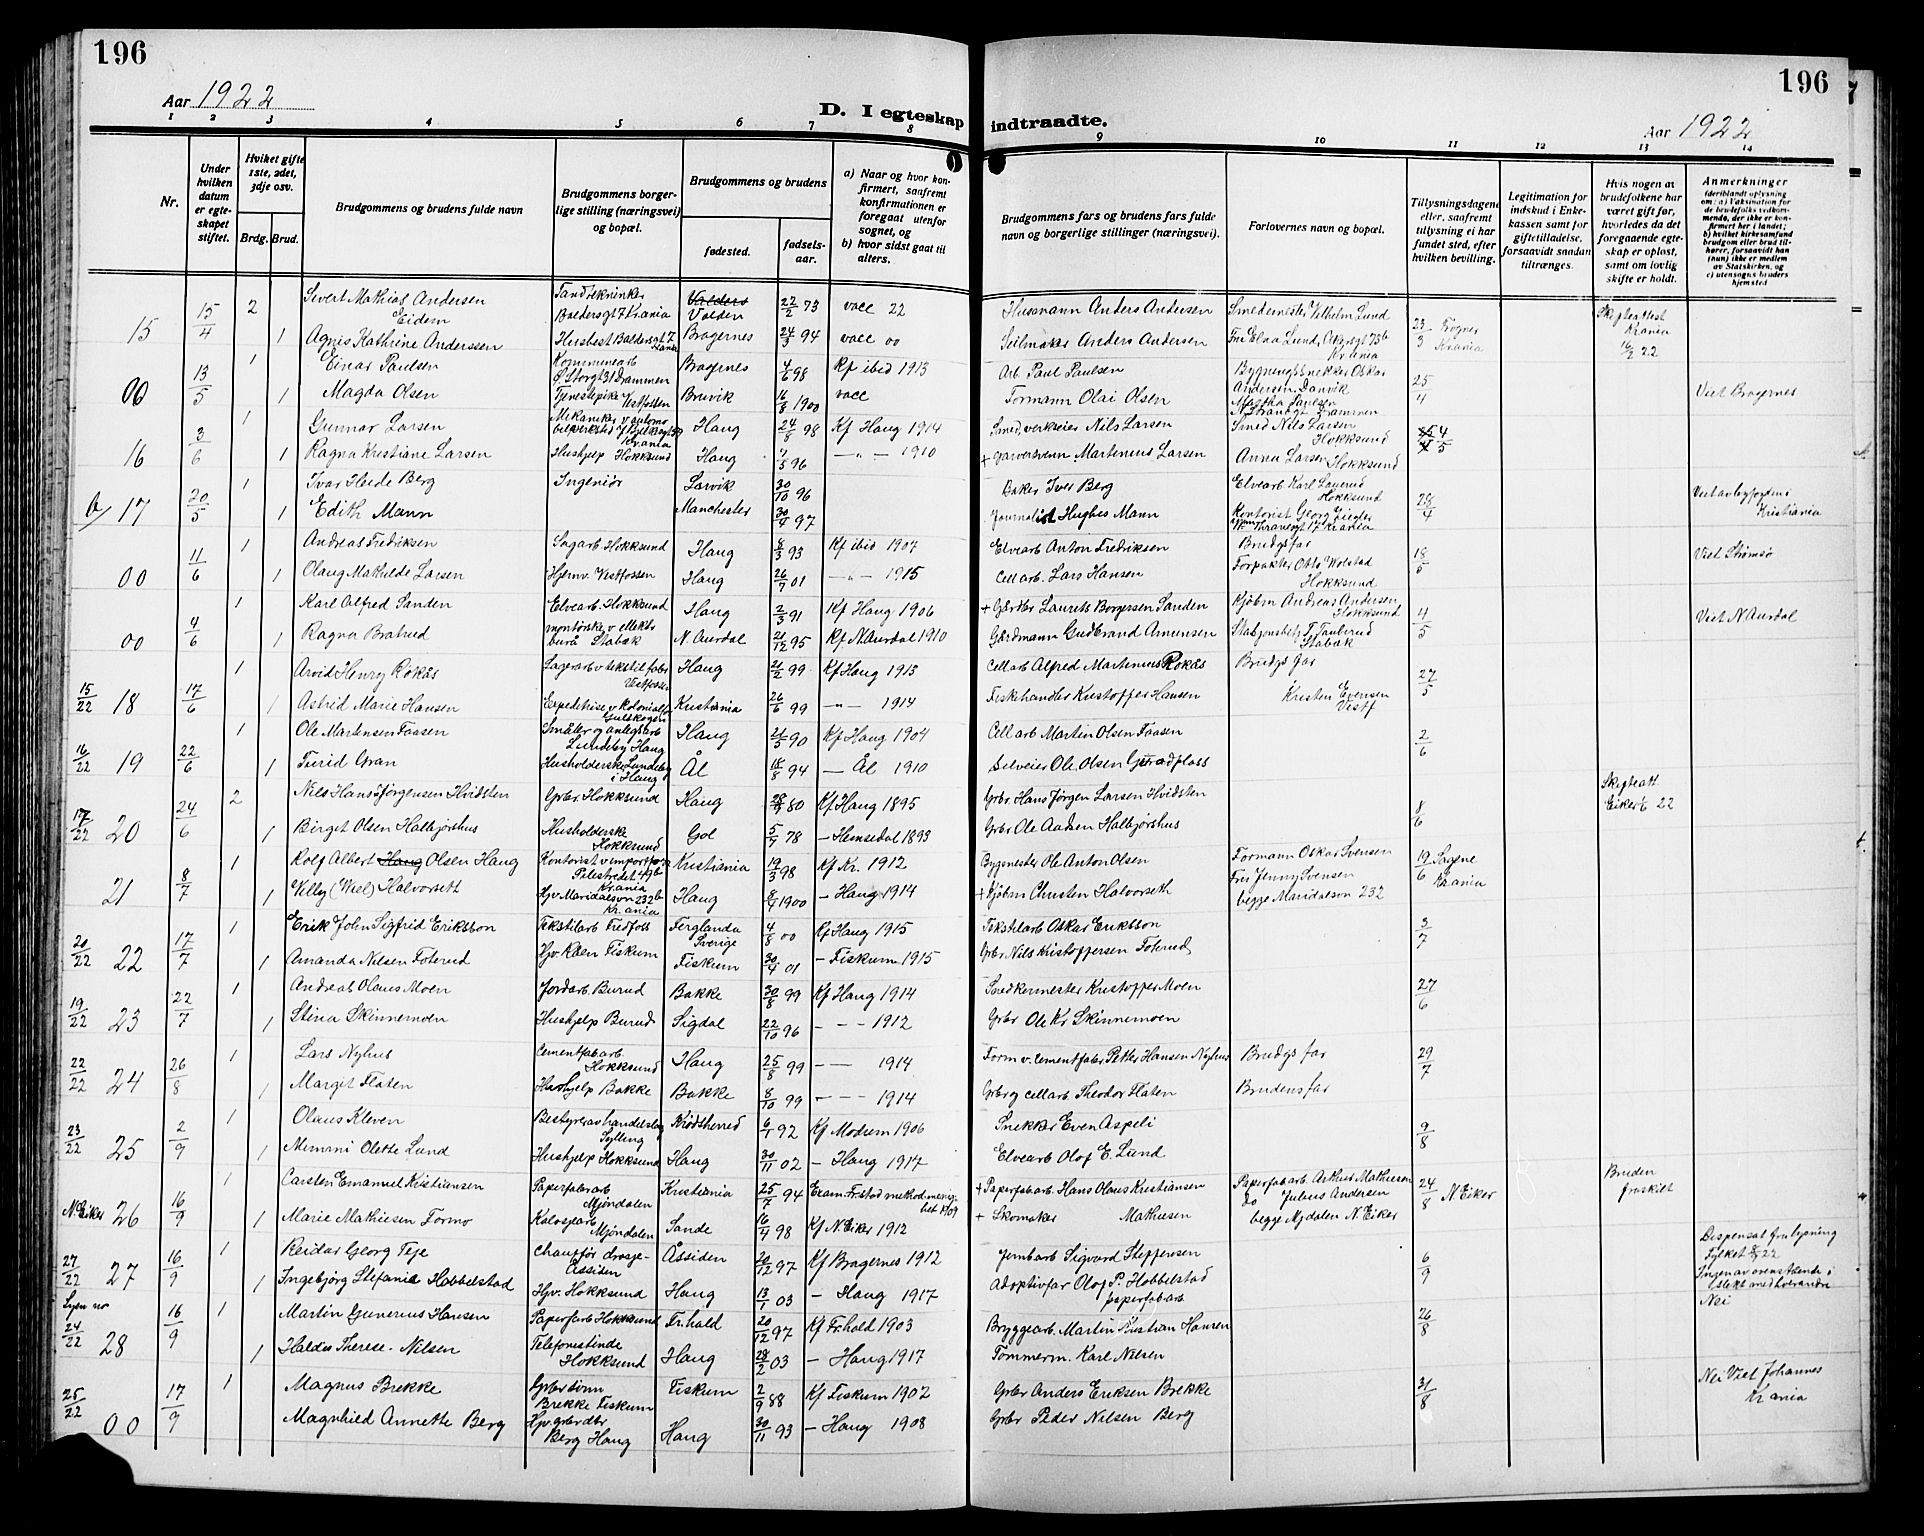 196
196
Aar 1922
D. I egteskap indtraadte.
Aar 1922
1 2 3 4 5 6 7 8 9 10 11 12 13 14
Nr.
Under hvilken datum er egteskapet stiftet.
Hvilket gifte 1ste, 2det, 3dje osv.
Brdg. Brud.
Brudgommens og brudens fulde navn
Brudgommens borgerlige stilling (næringsvei) og bopæl.
Brudgommens og brudens
fødested.
fødselsaar.
a) Naar og hvor konfirmert, saafremt konfirmationen er foregaat utenfor sognet, og
b) hvor sidst gaat til alters.
Brudgommens fars og brudens fars fulde navn og borgerlige stillinger (næringsvei).
Forlovernes navn og bopæl.
Tillysningsdagene eller, saafremt tillysning ei har fundet sted, efter hvilken bevilling.
Legitimation for indskud i Enkekassen samt for giftetilladelse, forsaavidt saadan tiltrænges.
Hvis nogen av brudefolkene har været gift før, hvorledes da det foregaaende egteskap er opløst, samt om lovlig skifte er holdt.
Anmerkninger
(deriblandt oplysning om: a) Vaksination for de brudefolks vedkommende, der ikke er konfirmert her i landet; b) hvilket kirkesamfund brudgom eller brud tilhører, forsaavidt han (hun) ikke er medlem av Statskirken, og c) utensogns bruders hjemsted
15 15/4 2 Sivert Mathias Andersen Eidem Tandtekniker Baldersgt 7 Krania Valden 22/2 73 vacc 22 Husmann Anders Andersen Smedemester Vilhelm Lund 23/3 Frogner Krania Skifteattest Krania 16/2 22
1 Agnes Kathrine Anderssen Baldersgt 7 Bragernes 24/3 94 vacc 00 Seilmaker Anders Andersen Fru Elna Lund, Akersgt 73b Krania
00 13/5 1 Einar Paulsen Kommunearb Ø Storgt 31 Drammen Bragernes 4/6 98 Kf ibid 1913 Arb. Paul Paulsen Bygningssnekker Oskar Andersen Danvik 25/4 Viet Bragernes
1 Magda Olsen Tjenestepike Vestfossen Bruvik 16/8 1900 vacc Formann Olai Olsen
16 3/6 1 Gunnar Larsen Haug 24/8 98 Kf Haug 1914 Smed, verkseier Nils Larsen Smed Nils Larsen Hokksund 4/5
1 Ragna Kristiane Larsen Hushjelp Hokksund Haug 7/5 96 — " — 1910 + garversvenn Martenius Larsen Anna Larsen Hokksund
17 20/5 1 Ivar Heide Berg Ingeniør Larvik 30/10 96 Baker Iver Berg Elvearb Karl Laurud Hokksund 28/4 Viet av byfogden i Kristiania
1 Edith Mann Manchester 30/4 97 Journalist Hughes Mann Kontorist Georg Ziegler Thranesgt 17 Krania
00 11/6 1 Andreas Fredriksen Sagarb Hokksund Haug 8/3 93 Kf ibid 1907 Elvearb Anton Fredriksen Brudgsfar 18/5 Viet Strømsø
1 Olaug Mathilde Larsen Hjemv. Vestfossen Haug 26/7 01 — " — 1915 Cellarb. Lars Hansen Forpakter Otto Wolstad Hokksund
00 4/6 1 Karl Alfred Sanden Elvearb Hokksund Haug 2/3 91 Kf Haug 1906 + Gårdbr Laurits Borgersen Sanden Kjøbm Andreas Andersen Hokksund 4/5 Viet N Aurdal
1 Ragna Bratrud montørske v elektr burå Stabæk N. Aurdal 21/12 95 Kf N Aurdal 1910 Gårdmann Gudbrand Amunsen Stasjonsbetj T. Tauberud Stabæk
15/22 18 17/6 1 Arvid Henry Rokås Lagerarb v tekstilfabr Vestfossen Haug 21/2 99 Kf Haug 1913 Cellarb Alfred Martenius Rokås Brudgs far 27/5
1 Astrid Marie Hansen Expeditrise v Kolonialf Gulskogen Kristiania 26/6 99 — " — 1914 Fiskehandler Kristoffer Hansen Kristen Evensen Vestf
16/22 19 22/6 1 Ole Martensen Faasen Småbr og anlegsarb Lundeby Haug Haug 21/5 90 Kf Haug 1904 Cellarb Martin Olsen Faasen 2/6
1 Turid Gran Husholderske Lundeby i Haug Ål 18/8 94 — Ål 1910 Selveier Ole Olsen
17/22 20 24/6 2 Nils Hans Jørgensen Hvidsten Grbr. Hokksund Haug 80 Kf Haug 1895 Grbr. Hans Jørgen Larsen Hvidsten 8/6 Skifteatt. Eiker 22
1 Birget Olsen Halbjørhus Husholderske Hokksund Gol 5/7 78 — Hemsedal 1893 Grbr Ole Aadsen Halbjørhus
21 8/7 1 Rolf Albert Olsen Haug Kontorist v import Pilestredet 49b Krania Kristiania 19/3 98 Kf Kr. 1912 Bygmester Ole Anton Olsen Formann Oskar Svensen 19/6 Sagene Krania
1 Villy (Wiel) Halvorseth Hjv Maridalsvn 232b Krania Haug 8/7 1900 — Haug 1914 + Kjøbm Christen Halvorseth Frk Jenny Svensen begge Maridalsvn 232
20/22 22 17/7 1 Erik John Sigfrid Eriksson Tekstilarb Fredfoss Ferglanda Sverige 4/8 00 Kf Haug 1915 Tekstilarb Oskar Eriksson 3/7
1 Amanda Nilsen Foterud Hjv. Råen Fiskum Fiskum 30/4 01 — Fiskum 1915 Grbr Nils Kristoffersen Foterud
19/22 23 22/7 1 Andreas Olaus Moen Jordarb. Burud Bakke 30/8 99 Kf Haug 1914 Snedkermester Kristoffer Moen 27/6
1 Stina Skinnemoen Hushjelp Burud Sigdal 22/10 96 — — — 1912 Grbr Ole Kr Skinnemoen
22/22 24 26/8 1 Lars Nyhus Cementfabarb. Hokksund Haug 25/8 99 — — 1914 Form v. cementfabr. Petter Hansen Nyhus Brudgs far 29/7
1 Margit Flaten Hushjelp Bakke Bakke 8/10 99 — — — 1914 Grbr og cellarb Theodor Flaten Brudens far
23/22 25 2/9 1 Olaus Kleven Bestyrer av handelslag Sylling Krødsherred 6/1 92 Kf Modum 1906 Snekker Even Aspeli 9/8
1 Memmi Olette Lund Hushjelp Hokksund Haug 30/11 02 — Haug 1917 Elvearb Olof E. Lund
N. Eiker 26 16/9 1 Carsten Emanuel Kristiansen Papirfabarb Mjøndalen Kristiania 25/7 94 Exam. Fr.stad metodmenighet 1909 + Papirfabarb. Hans Olaus Kristiansen Papirfabarb. Arthur Mathiesen 24/8 N Eiker Bruden fraskilt
1 Marie Mathiesen Formo Kalosjearb Mjøndalen Sande 16/4 98 Kf N. Eiker 1912 + Skomaker Mathiesen Do Julius Andersen begge Mjdalen N. Eiker
27/22 27 16/9 1 Reidar Georg Teje Chauffør drosje- Åssiden Åssiden 20/12 97 Kf Bragernes 1912 Jernbarb Sigvard Steffensen 6/9 Dispensat fra lysning Fylket 22
1 Ingebjørg Stefania Hobbelstad Hjv. Hokksund Haug 13/1 03 — Haug 1917 Adoptivfar Olof P. Hobbelstad papirfabarb Ingen av ovenstående i slekt med hverandre
24/22 28 16/9 1 Martin Gunerius Hansen Papirfarb Hokksund Fr.hald 20/12 97 Kf Fr.hald 1903 Bryggearb. Martin Kristian Hansen 26/8 Nei
1 Haldis Therese Nilsen Telefonistinde Hokksund Haug 28/2 03 — Haug 1917 Tømmerm. Karl Nilsen
25/22 00 17/9 1 Magnus Brekke Grbr sønn Brekke Fiskum Fiskum 2/9 88 Kf Fiskum 1902 Grbr Anders Eriksen Brekke 31/8 Nei Viet Johannes Krania
1 Magnhild Annette Berg Hjv. grbr dtr Berg Haug Haug 30/11 93 — Haug 1908 Grbr Peder Nilsen Berg